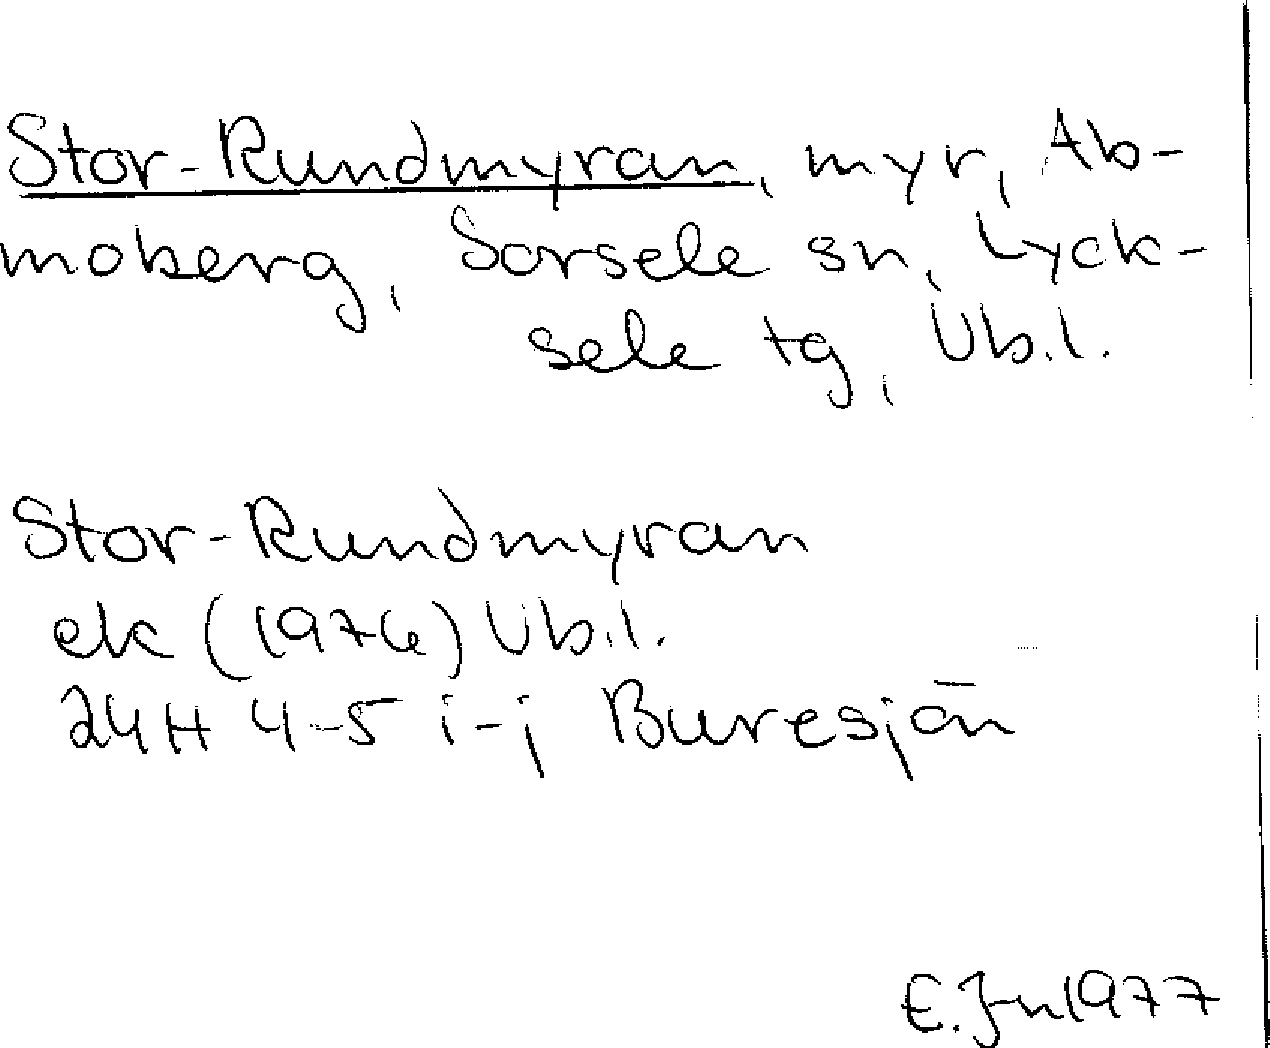 Stor-Rundmyran, myr, Ab-
moberg, Sorsele sn, Lyck-
sele tg, Vb.l.
Stor-Rundmyran
ek (1976) Vb.l.
24H 4-5 i-j Buresjön
E. Jn 1977